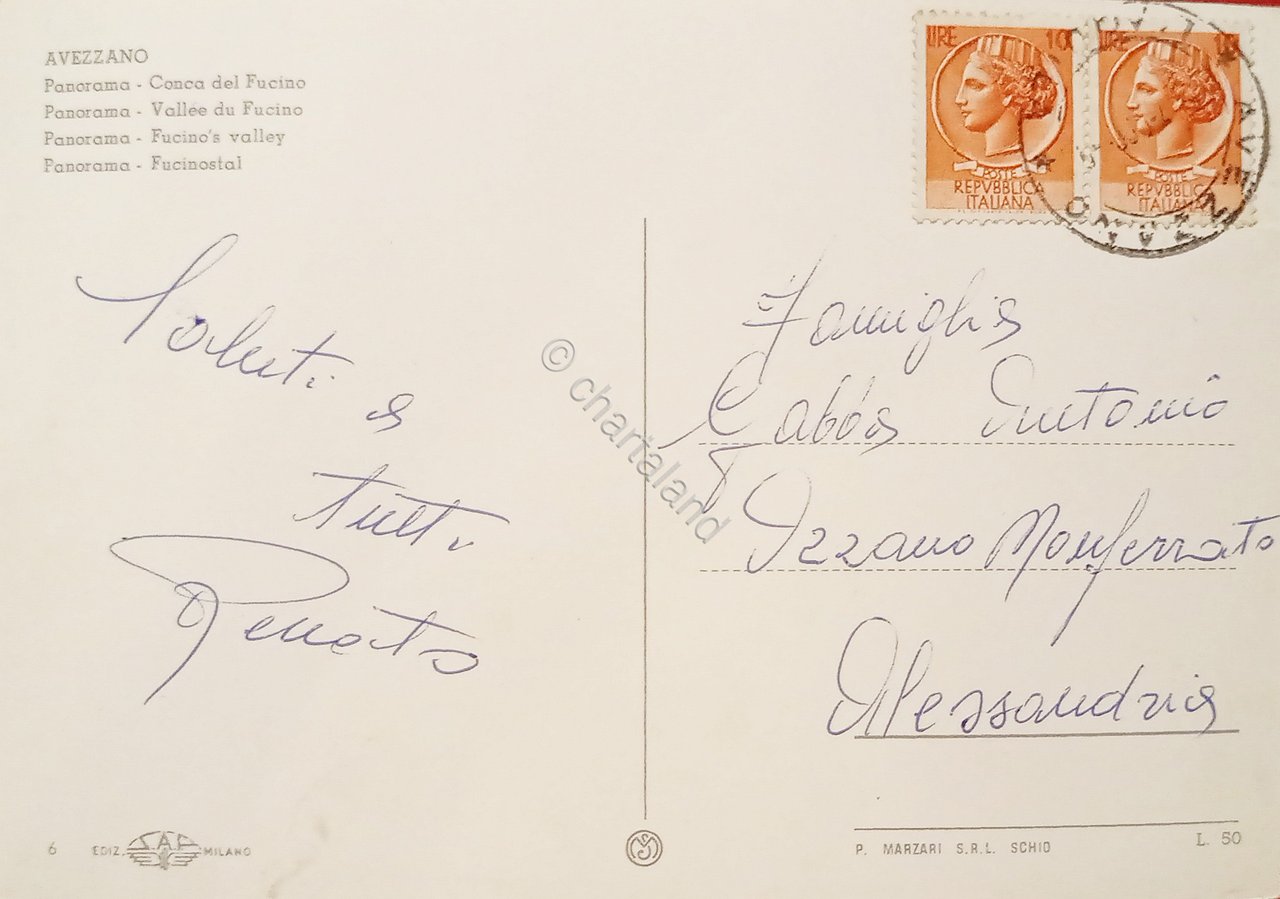 AVEZZANO
Panorama - Conca del Fucino
Panorama - Vallée du Fucino
Panorama - Fucino's valley
Panorama - Fucinostal
LIRE 10
LIRE 10
POSTE
REPVBBLICA
ITALIANA
POSTE
REPVBBLICA
ITALIANA
AVEZZANO
Saluti a
tutti
Renato
Famiglia
Gabba Antonio
Ozzano Monferrato
Alessandria
© chartaland
6 EDIZ. SAF MILANO
P. MARZARI S.R.L. SCHIO
L. 50